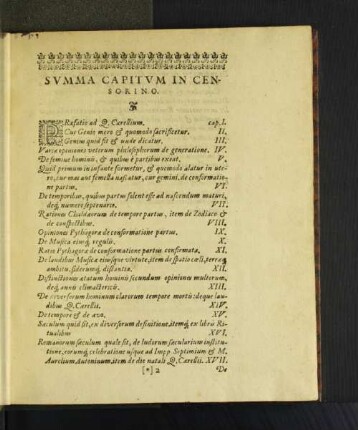 SVMMA CAPITVM IN CEN-
SORINO.
PRæfatio ad Q. Cærellium. cap. I.
Cur Genio mero & quomodo sacrificetur. II.
Genius quid sit & unde dicatur. III.
Variæ opiniones veterum philosophorum de generatione. IV.
De semine hominis, & quibus è partibus exeat. V.
Quid primum in infante formetur, & quomodo alatur in ute-
ro, cur mas aut femella nascatur, cur gemini, de conformatio-
ne partus. VI.
De temporibus, quibus partus solent esse ad nascendum maturi,
deq́; numero septenario. VII.
Rationes Chaldæorum de tempore partus, item de Zodiaco &
de conspectibus. VIII.
Opiniones Pythagoræ de conformatione partus. IX.
De Musica eiusq́; regulis. X.
Ratio Pythagoræ de conformatione partus confirmata. XI.
De laudibus Musicæ eiusque virtute, item de spatio cæli, terræq́;
ambitu, siderumq́; distantia. XII.
Distinctiones ætatum hominis secundum opiniones multorum,
deq́; annis climactericis. XIII.
De diversorum hominum clarorum tempore mortis: deque lau-
dibus Q. Cærellii. XIV.
De tempore & de ævo. XV.
Sæculum quid sit, ex diversorum definitione, itemq́; ex libris Ri-
tualibus XVI.
Romanorum sæculum quale sit, de ludorum sæcularium institu-
tione, eorumq́; celebratione usque ad Impp. Septimium & M.
Aurelium Antoninum, item de die natali Q. Cærellii. XVII.
[*] 2 De